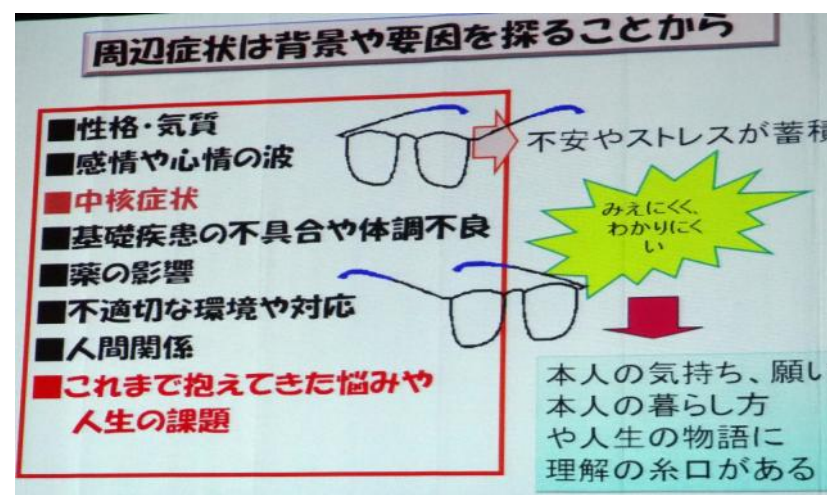 周辺症状は背景や要因を探ることから
■性格・気質
■感情や心情の波
■中核症状
■基礎疾患の不具合や体調不良
■薬の影響
■不適切な環境や対応
■人間関係
■これまで抱えてきた悩みや
人生の課題
不安やストレスが蓄積
みえにくく、
わかりにく
い
本人の気持ち、願い
本人の暮らし方
や人生の物語に
理解の糸口がある